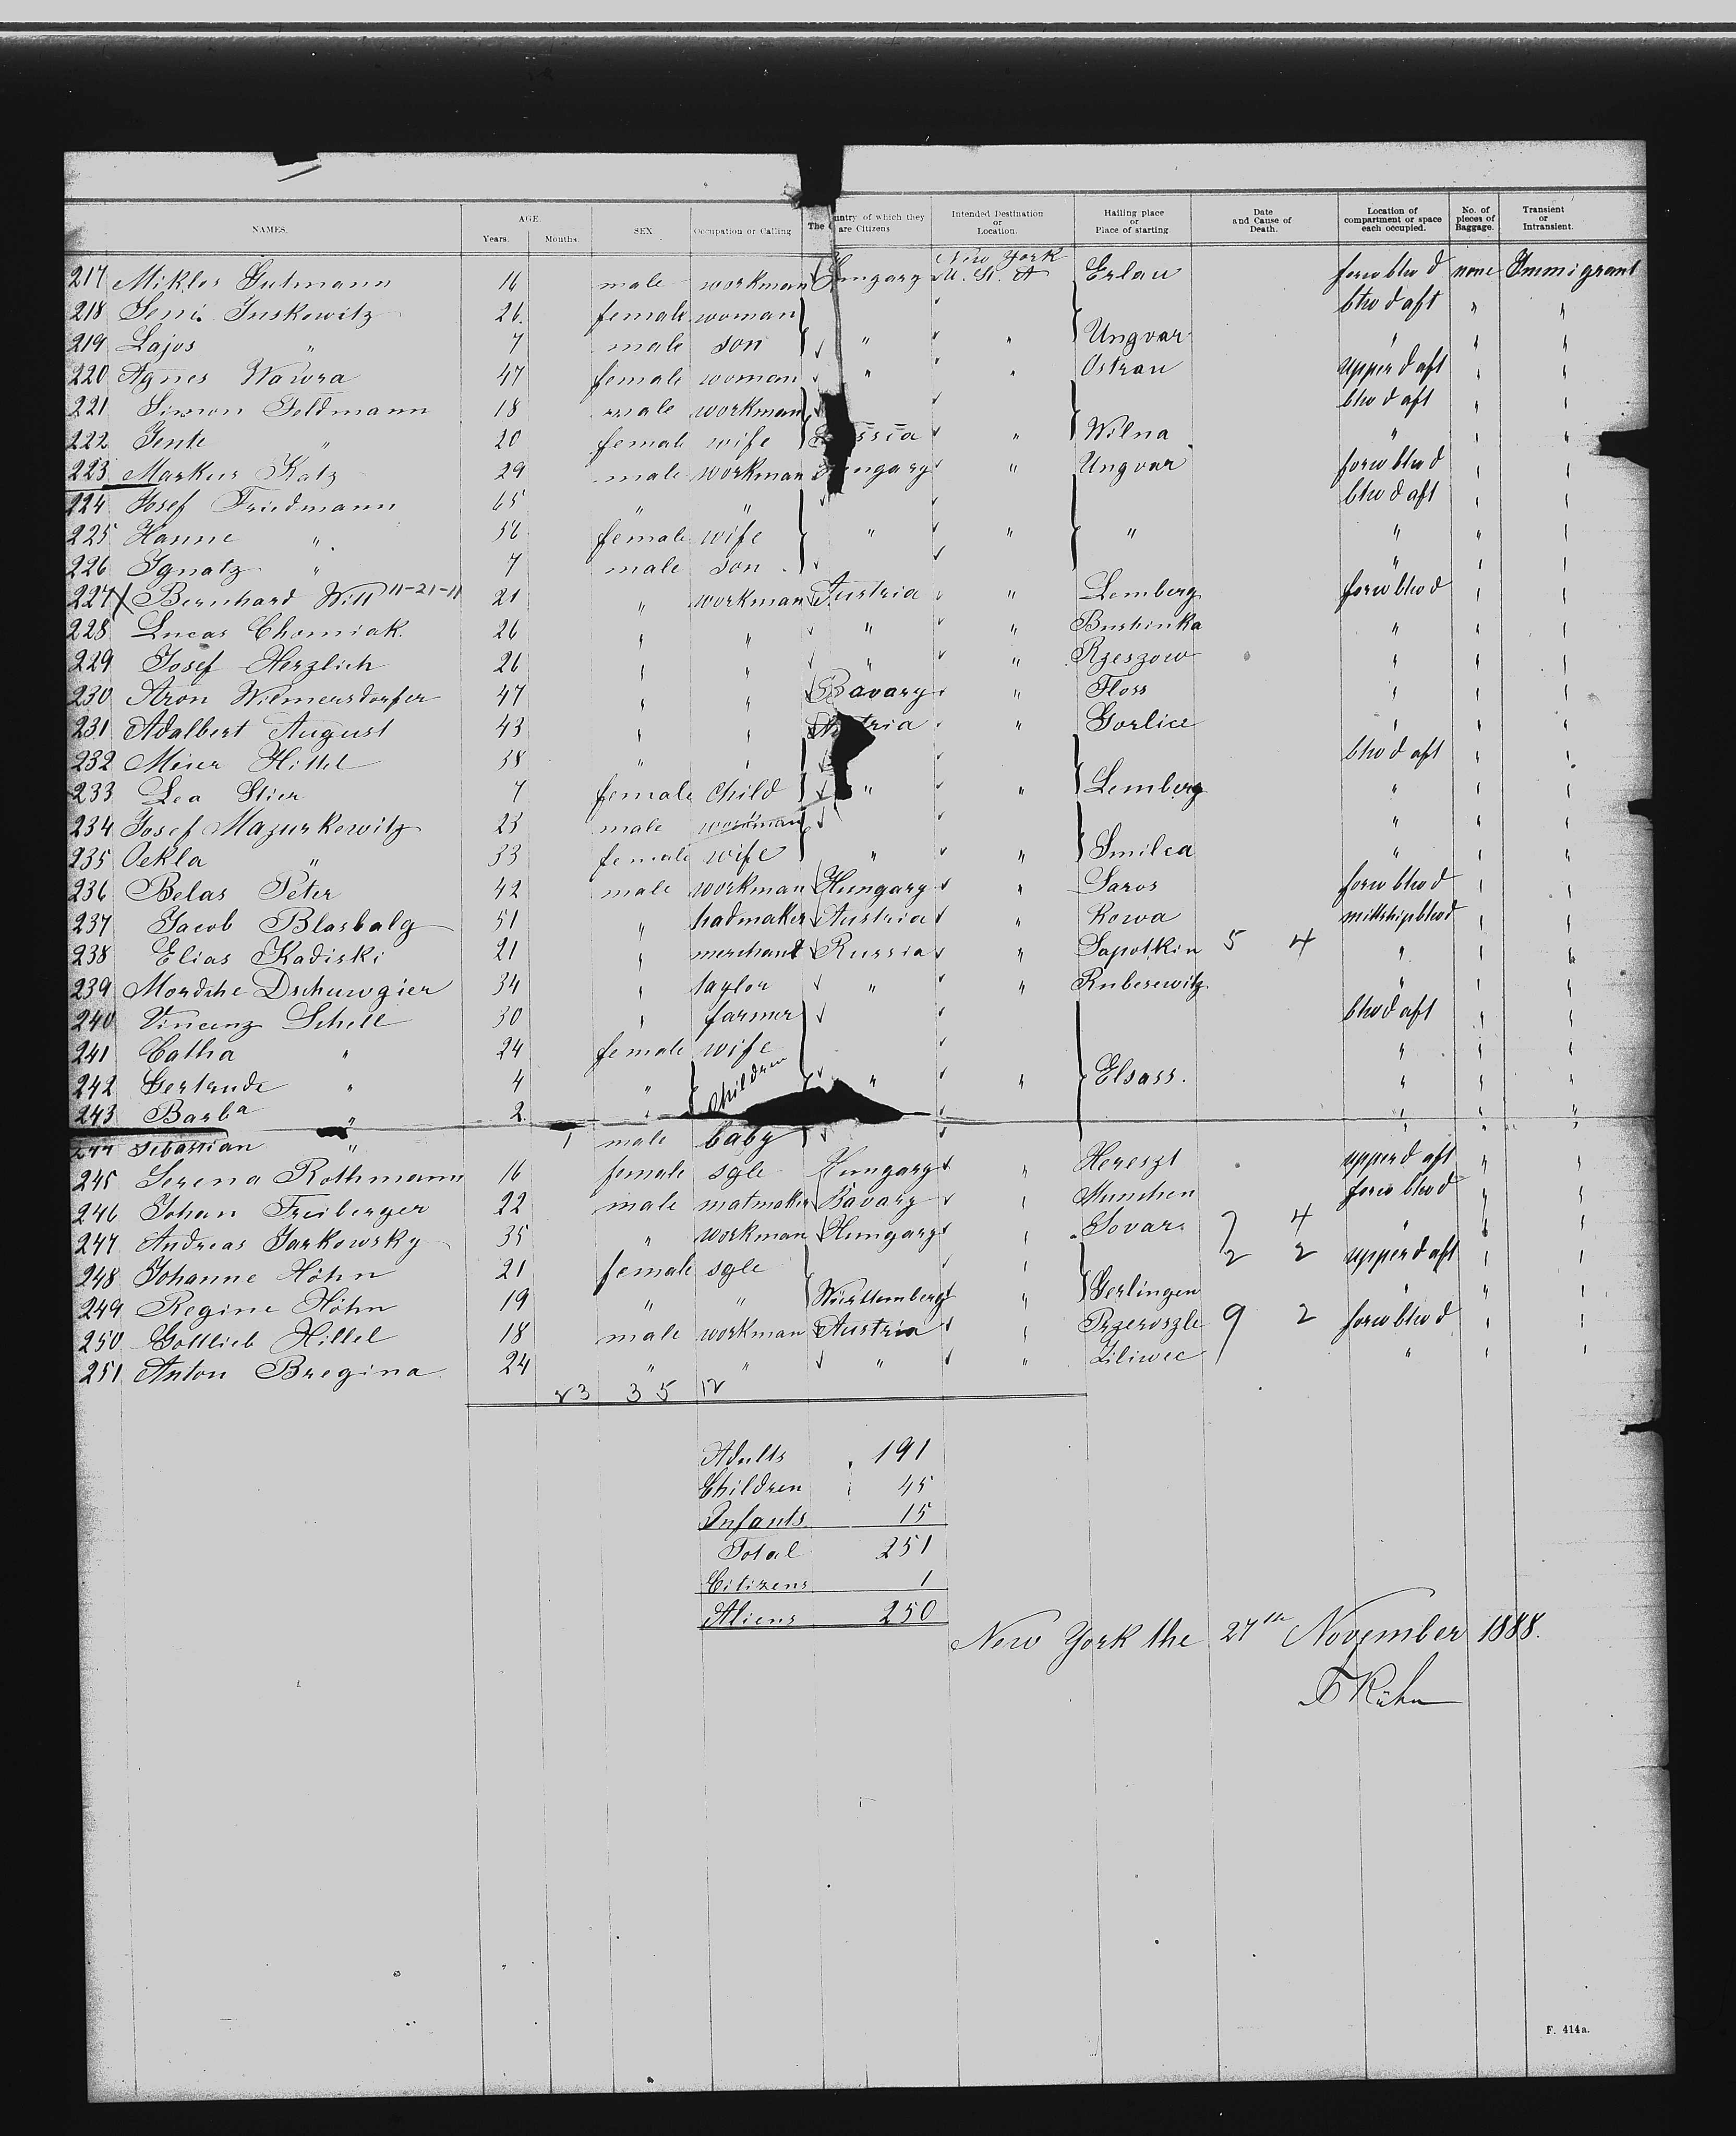 NAMES. AGE. Years. Months. SEX Occupation or Calling The Country of which they are Citizens Intended Destination or Location. Hailing place or Place of starting Date and Cause of Death. Location of compartment or space each occupied. No. of pieces of Baggage. Transient or Intransient.
New York
217 Miklos Gutmann 16 male workman Hungary U. St. A Erlau forw btw d none Immigrant
218 Seni Juskowitz 26 female woman btw d aft " "
219 Lajos " 7 male son " " Ungvar " " "
220 Agnes Wawra 47 female woman " " Ostrau upper d aft " "
221 Simon Feldmann 18 male workman btw d aft " "
222 Jente " 20 female wife Russia " Wilna " " "
223 Markus Katz 29 male workman Hungary " Ungvar forw btw d " "
224 Josef Friedmann 65 " " btw d aft " "
225 Hanne " 56 female wife " " " " " "
226 Ignatz " 7 male son " " "
227 X Bernhard Will 11-21-11 21 " workman Austria " Lemberg forw btw d " "
228 Lucas Chomiak 26 " " " " Bushinka " " "
229 Josef Herzlich 26 " " " " Rzeszow " " "
230 Aron Wilmersdorfer 47 " " Bavary " Floss " " "
231 Adalbert August 43 " " Austria " Gorlice " " "
232 Meier Hittel 38 " " btw d aft " "
233 Lea Stier 7 female child " " Lemberg " " "
234 Josef Mazurkewitz 23 male workman " " "
235 Oekla " 33 female wife " " Smilea " " "
236 Belas Peter 42 male workman Hungary " Saros forw btw d " "
237 Jacob Blasbalg 51 " hadmaker Austria " Rowa mittshipbtwd " "
238 Elias Kadiski 21 " merchant Russia " Sapotkin 5 4 " " "
239 Mordche Dschuwgier 34 " taylor " " Rubesewitz " " "
240 Vincenz Schell 30 " farmer btwd aft " "
241 Catha " 24 female wife " " "
242 Gertrude " 4 " children " " Elsass. " " "
243 Barba " 2 " " " "
244 Sebastian " 1 male baby " " "
245 Serena Rothmann 16 female sgle Hungary " Hereszt upper d aft " "
246 Johan Freiberger 22 male matmaker Bavary " Munchen forw btwd " "
247 Andreas Jarkowsky 35 " workman Hungary " Sovar 4 " " "
248 Johanne Höhn 21 female sgle " 2 2 upper d aft " "
249 Regine Höhn 19 " " Württemberg " Gerlingen " " "
250 Gottlieb Hillel 18 male workman Austria " Przeroszle 9 2 forw btw d " "
251 Anton Bregina 24 " " " " Ziliwec " " "
23 35 12
Adults 191
Children 45
Infants 15
Total 251
Citizens 1
Aliens 250
New York the 27th November 1888.
Kühn
F. 414a.